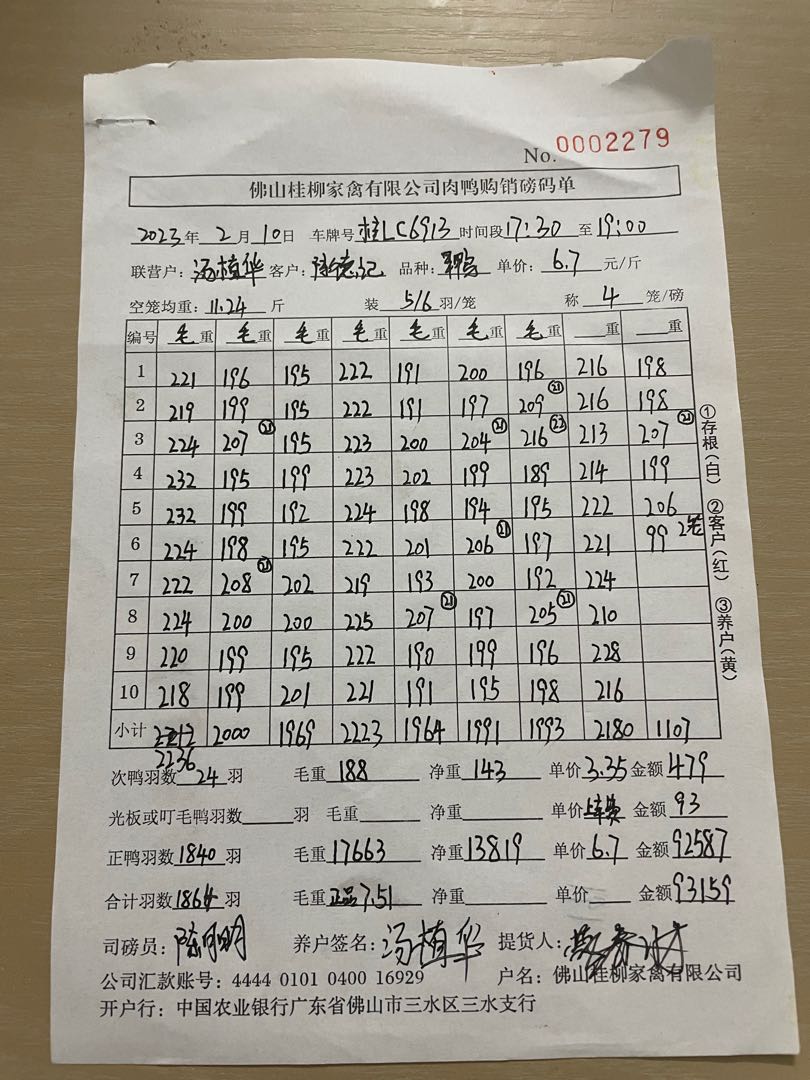 No. 0002279
佛山桂柳家禽有限公司肉鸭购销磅码单
2023年 2月 10日 车牌号 桂LC6913 时间段 17:30 至 19:00
联营户: 汤植华 客户: 陈德记 品种: 单价: 6.7 元/斤
空笼均重: 11.24 斤 装 5/6 羽/笼 称 4 笼/磅
编号 毛重 毛重 毛重 毛重 毛重 毛重 毛重 重 重
1 221 196 195 222 191 200 196 216 198
2 219 199 195 222 191 197 209 ㉑ 216 198
3 224 207 ㉑ 195 223 200 204 ㉑ 216 ㉒ 213 207 ㉑
4 232 195 199 223 202 199 189 214 199
5 232 199 192 224 198 194 195 222 206
6 224 198 195 222 201 206 ㉑ 197 221 99 2笼
7 222 208 ㉑ 202 219 193 200 192 224
8 224 200 200 225 207 ㉑ 197 205 ㉑ 210
9 220 199 195 222 190 199 196 228
10 218 199 201 221 191 195 198 216
小计 2000 1969 2223 1964 1991 1993 2180 1107
2236
次鸭羽数 24 羽 毛重 188 净重 143 单价 3.35 金额 479
光板或叮毛鸭羽数 羽 毛重 净重 单价 上车费 金额 93
正鸭羽数 1840 羽 毛重 17663 净重 13819 单价 6.7 金额 92587
合计羽数 1864 羽 毛重 正品7.51 净重 单价 金额 93159
司磅员: 陈明 养户签名: 汤植华 提货人:
公司汇款账号: 4444 0101 0400 16929 户名: 佛山桂柳家禽有限公司
开户行: 中国农业银行广东省佛山市三水区三水支行
①存根(白) ②客户(红) ③养户(黄)